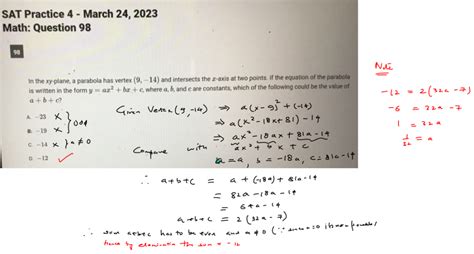 SAT Practice 4 - March 24, 2023
Math: Question 98
98
In the xy-plane, a parabola has vertex (9, −14) and intersects the x-axis at two points. If the equation of the parabola is written in the form y = ax² + bx + c, where a, b, and c are constants, which of the following could be the value of
a + b + c?
A. −23 x
B. −19 x } odd
C. −14 x } a≠0
D. −12 ✓
Given Vertex (9,-14) ⇒ a(x-9)² + (-14)
⇒ a(x²-18x+81) - 14
⇒ ax² - 18ax + 81a-14
Compare with ax² + bx + c
a = a, b = -18a, c = 81a-14
∴ a+b+c = a + (-18a) + 81a - 14
= 82a - 18a - 14
= 64a - 14
a+b+c = 2(32a-7)
∴ now a+b+c has to be even and a≠0 (∵ a=0 is non parabola)
hence by elimination the -12
Note
-12 = 2(32a-7)
-6 = 32a-7
1 = 32a
1/32 = a